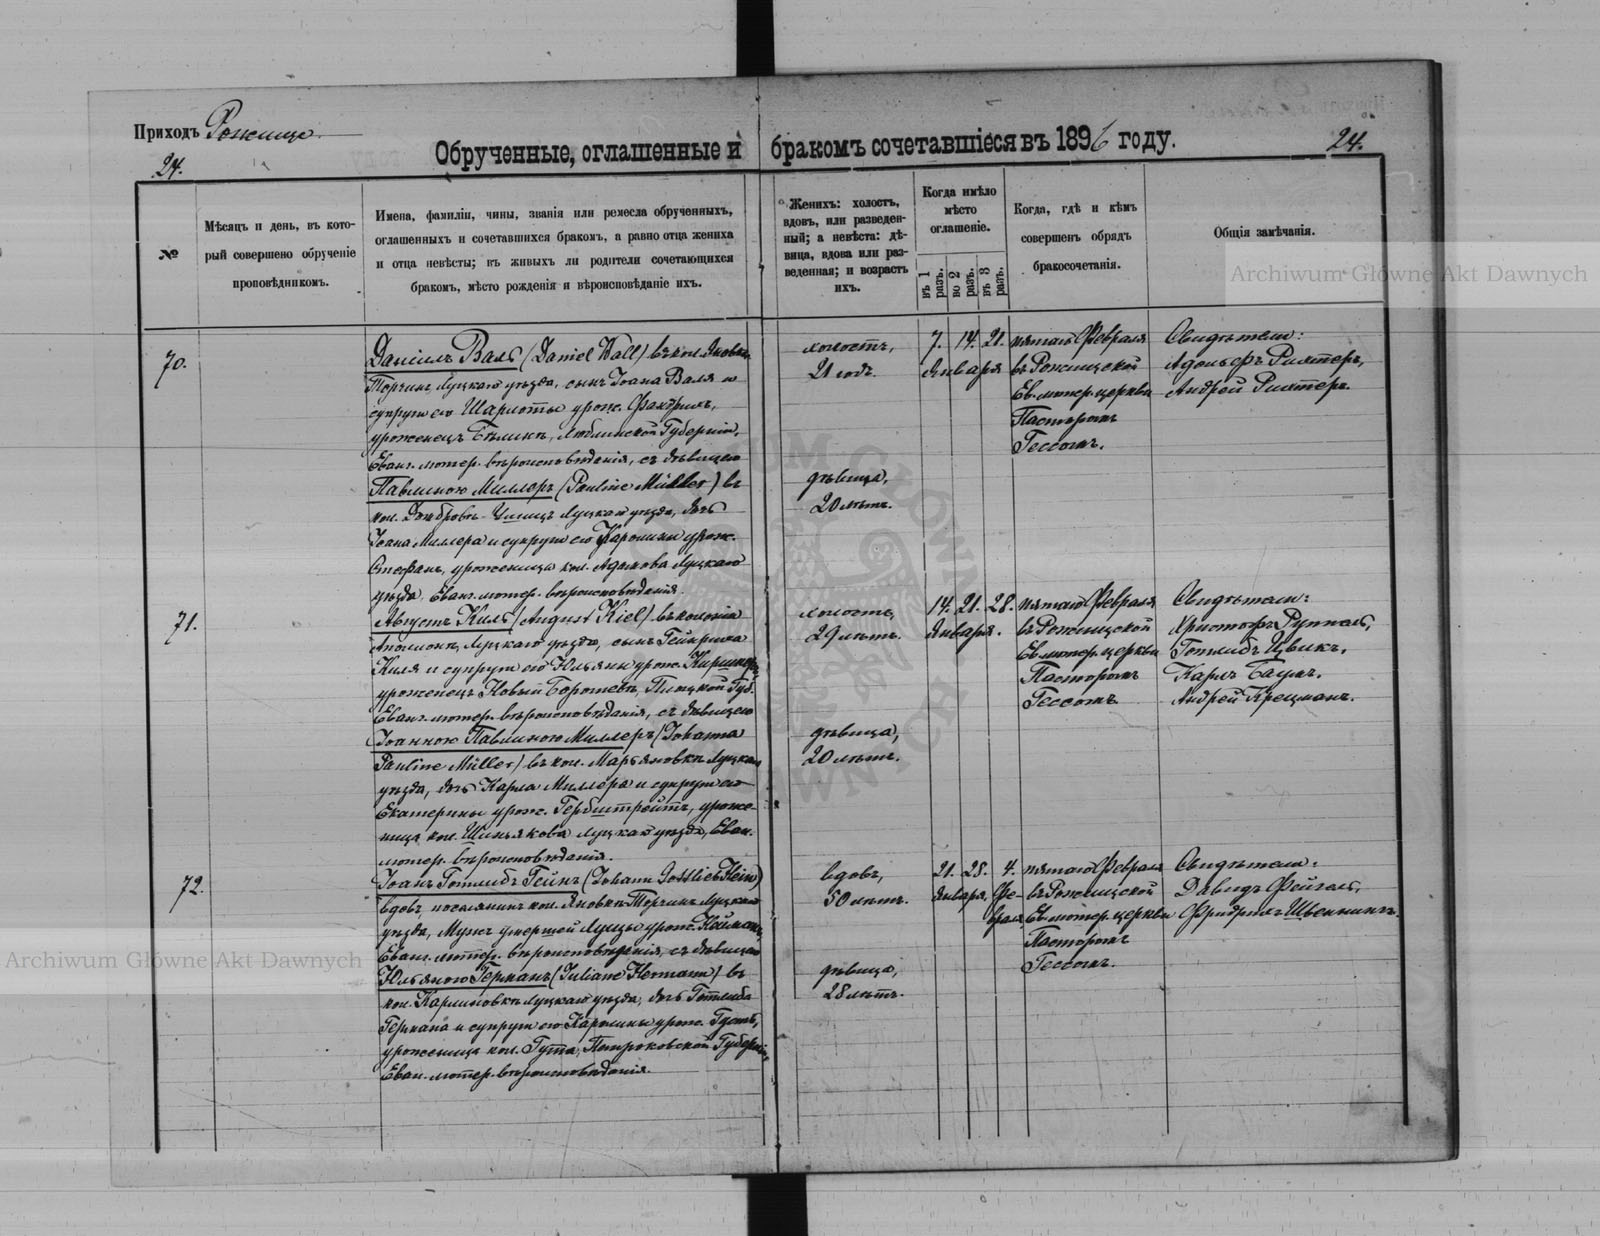 Приходъ Рожище
24.
Обрученные, оглашенные и бракомъ сочетавшіеся въ 1896 году.
24.
№
Мѣсяцъ и день, въ кото-
рый совершено обрученіе
проповѣдникомъ.
Имена, фамиліи, чины, званія или ремесла обрученныхъ,
оглашенныхъ и сочетавшихся бракомъ, а равно отца жениха
и отца невѣсты; въ живыхъ ли родители сочетающихся
бракомъ, мѣсто рожденія и вѣроисповѣданіе ихъ.
Женихъ: холостъ,
вдовъ, или разведен-
ный; а невѣста: дѣ-
вица, вдова или раз-
веденная; и возрастъ
ихъ.
Когда имѣло
мѣсто
оглашеніе.
въ 1 разъ.
во 2 разъ.
въ 3 разъ.
Когда, гдѣ и кѣмъ
совершенъ обрядъ
бракосочетанія.
Общія замѣчанія.
70.
Даніилъ Валь (Daniel Wall) въ кол. Яновка
Торчинъ, Луцкаго уѣзда, сынъ Іоана Валя и
супруги его Шарлоты урож.
уроженецъ Люблинской Губерніи,
Еванг. лютер. вѣроисповѣданія, съ дѣвицею
Павлиною Миллеръ (Pauline Müller) въ
кол. Домбровка Луцкаго уѣзда, дочь
Іоана Миллера и супруги его Каролины урож.
Стефанъ, уроженица кол. Адамова Луцкаго
уѣзда, Еванг. лютер. вѣроисповѣданія.
холостъ,
21 годъ.
дѣвица,
20 лѣтъ.
7. 14. 21.
Января
пятаго Февраля
въ Рожищской
Ев. лютер. церкви
Пасторомъ
Гессомъ.
Свидѣтели:
Адольфъ Рихтеръ,
Андрей Рихтеръ.
71.
Августъ Киль (August Kiel) въ колоніи
Луцкаго уѣзда, сынъ Гейнриха
Киля и супруги его Юльяны урож.
уроженецъ Новый Плоцкой Губ.
Еванг. лютер. вѣроисповѣданія, съ дѣвицею
Іоанною Павлиною Миллеръ (Johanna
Pauline Müller) въ кол. Марьяновка Луцкаго
уѣзда, дочь Карла Миллера и супруги его
Екатерины урож. Гербштрейтъ, уроже-
ница кол. Шиньякова Луцкаго уѣзда, Еван.
лютер. вѣроисповѣданія.
холостъ,
29 лѣтъ.
дѣвица,
20 лѣтъ.
14. 21. 28.
Января.
пятаго Февраля
въ Рожищской
Ев. лютер. церкви
Пасторомъ
Гессомъ
Свидѣтели:
Христофъ Руппель,
Готлибъ Цвикъ,
Карлъ Баумъ,
Андрей Крецманъ.
72.
Іоанъ Готлибъ Гейнъ (Johann Gottlieb Hein)
вдовъ, поселянинъ кол. Яновка Торчинъ Луцкаго
уѣзда, Мужъ умершей Луизы урож. Нейманъ,
Еванг. лютер. вѣроисповѣданія, съ дѣвицею
Юльяною Германъ (Juliane Hermann) въ
кол. Карлиновка Луцкаго уѣзда, дочь Готлиба
Германа и супруги его Каролины урож. Густъ,
уроженица кол. Гута, Петроковской Губерніи,
Еван. лютер. вѣроисповѣданія.
вдовъ,
50 лѣтъ.
дѣвица,
28 лѣтъ.
21. 28. 4.
Января. Фе-
враля
пятаго Февраля
въ Рожищской
Ев. лютер. церкви
Пасторомъ
Гессомъ.
Свидѣтели:
Давидъ Фейгель,
Фридрихъ Швенкингъ.
Archiwum Główne Akt Dawnych
Archiwum Główne Akt Dawnych